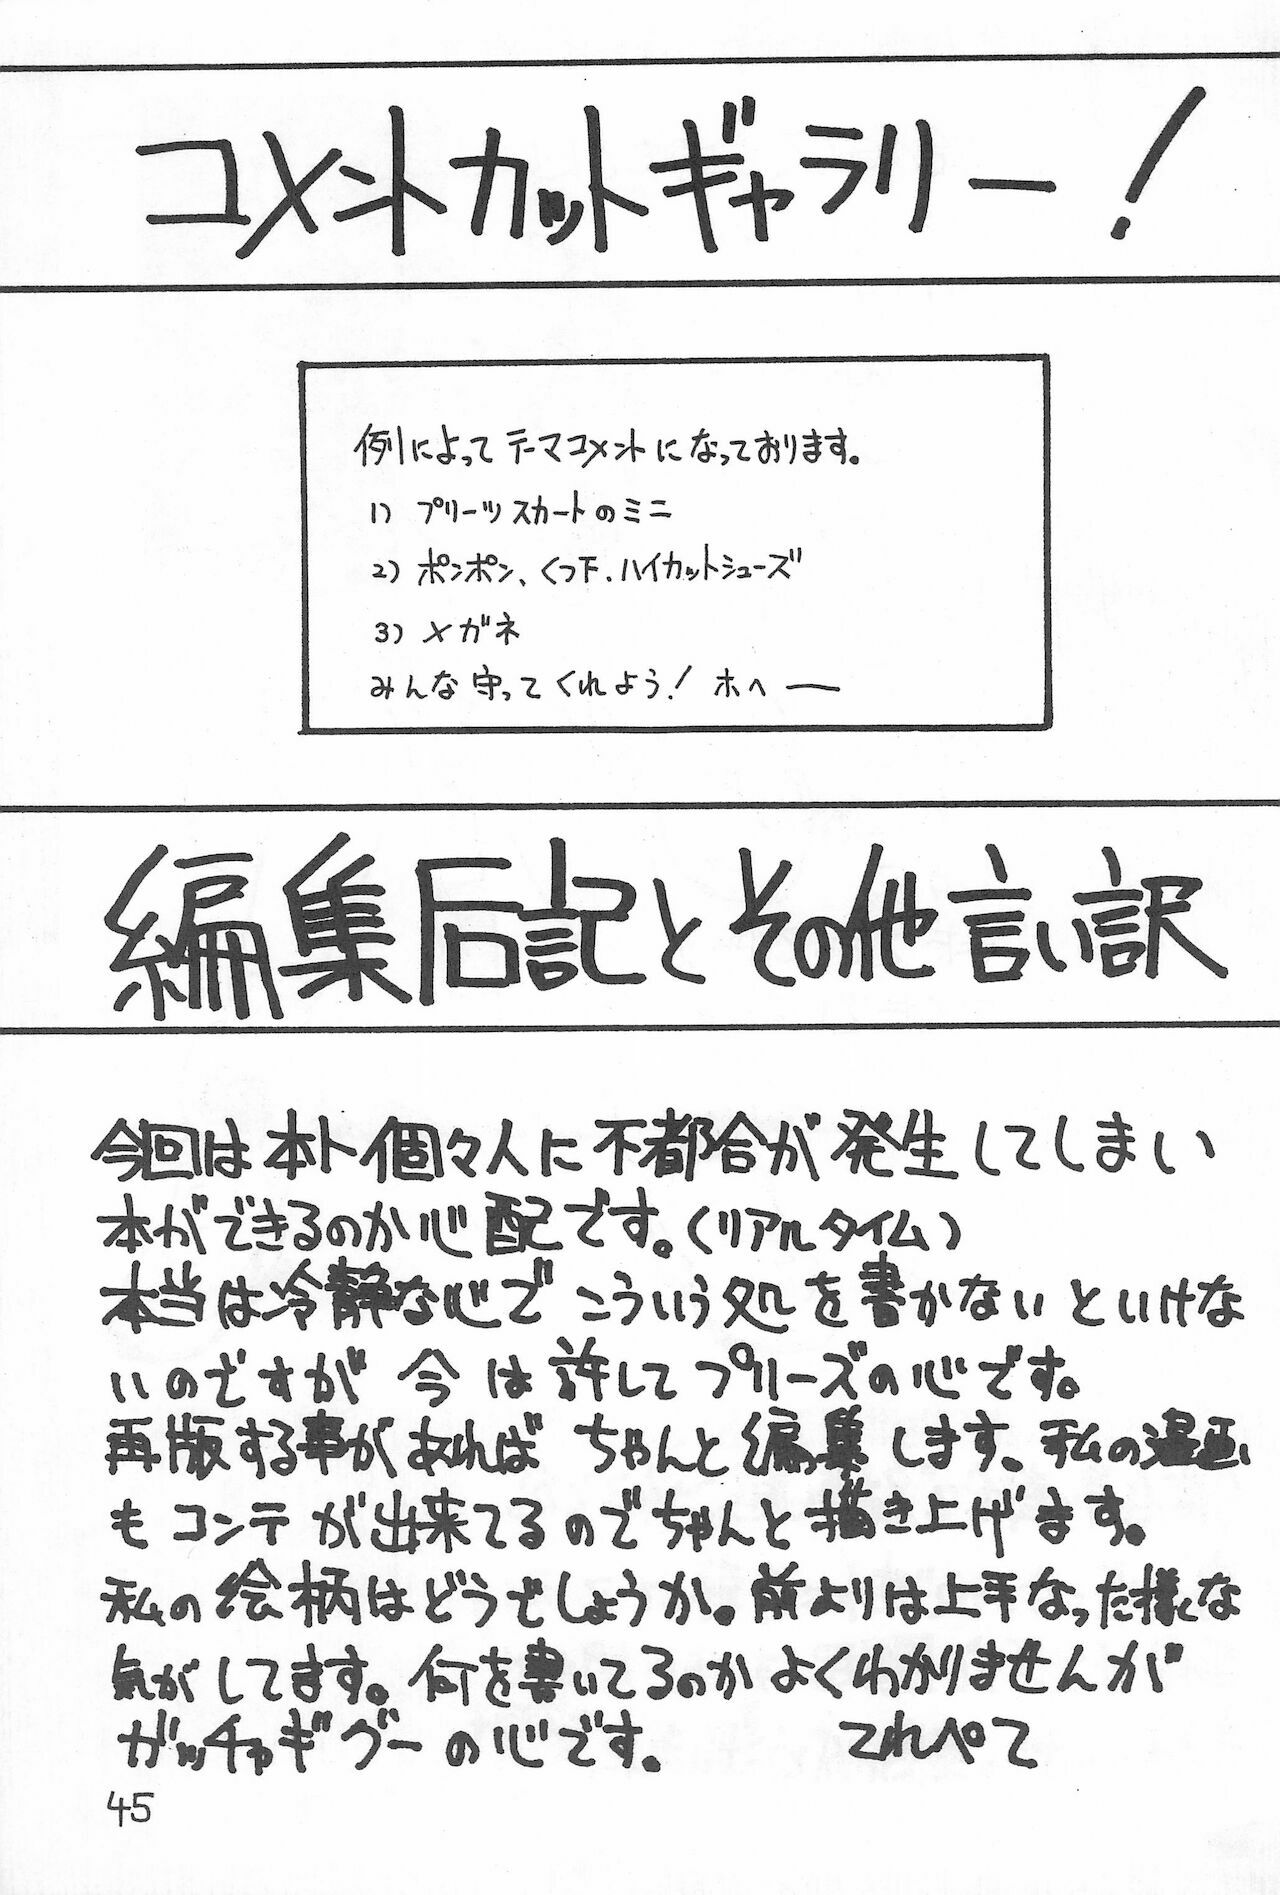 コメントカットギャラリー！
例によってテーマコメントになっております。
1) プリーツスカートのミニ
2) ポンポン、くつ下、ハイカットシューズ
3) メガネ
みんな守ってくれよう！ ホヘ──
編集后記とその他言い訳
今回は本ト個々人に不都合が発生してしまい
本ができるのか心配です。(リアルタイム)
本当は冷静な心でこういう処を書かないといけな
いのですが 今は許してプリーズの心です。
再版する事があればちゃんと編集します、私の漫画
もコンテが出来てるのでちゃんと描き上げます。
私の絵柄はどうでしょうか。前よりは上手なった様な
気がしてます。何を書いてるのかよくわかりませんが
ガッチャギグーの心です。 てれぺて
45